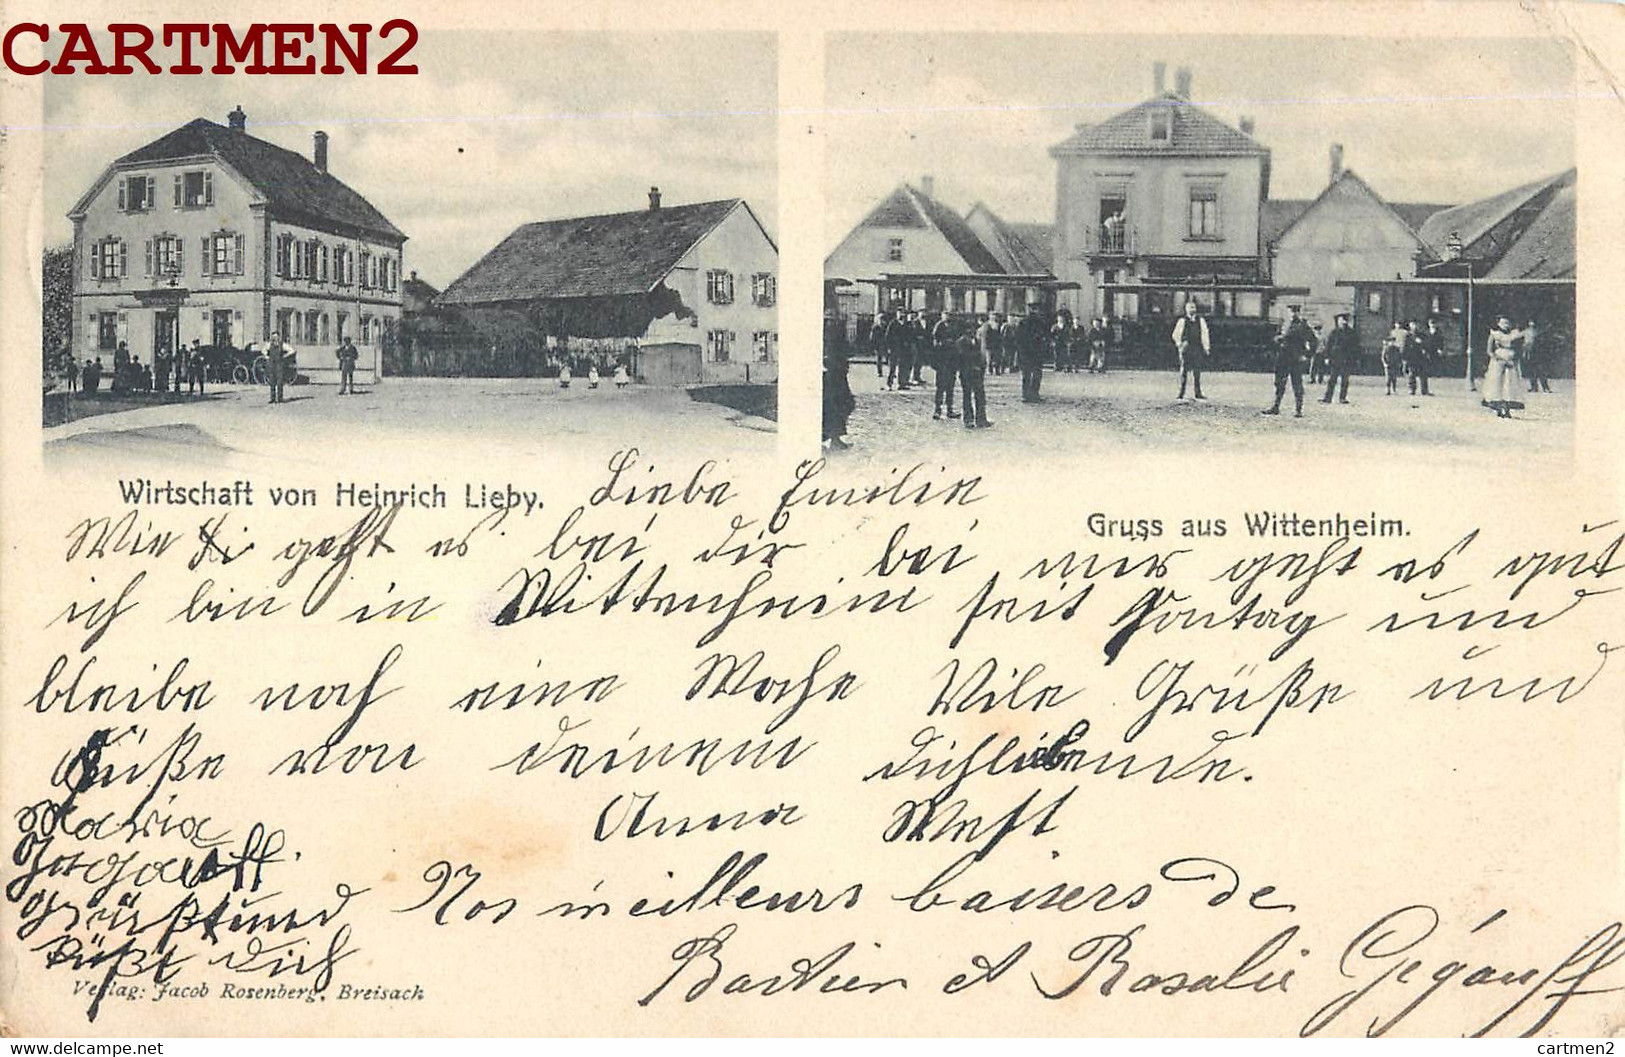 CARTMEN2
Wirtschaft von Heinrich Lieby.
Gruss aus Wittenheim.
Liebe Emilie
Wie geht es bei dir bei mir geht es gut
ich bin in Wittenheim seit Sontag und
bleibe noch eine Woche Vile Grüße und
Küße von deinem dichliebende.
Anna West
Maria
Gegauff.
Grüßt und
Küßt dich
Nos meilleurs baisers de
Bastien et Rosalie Gégauff
Verlag: Jacob Rosenberg, Breisach
cartmen2
https://www.delcampe.net
cartmen2